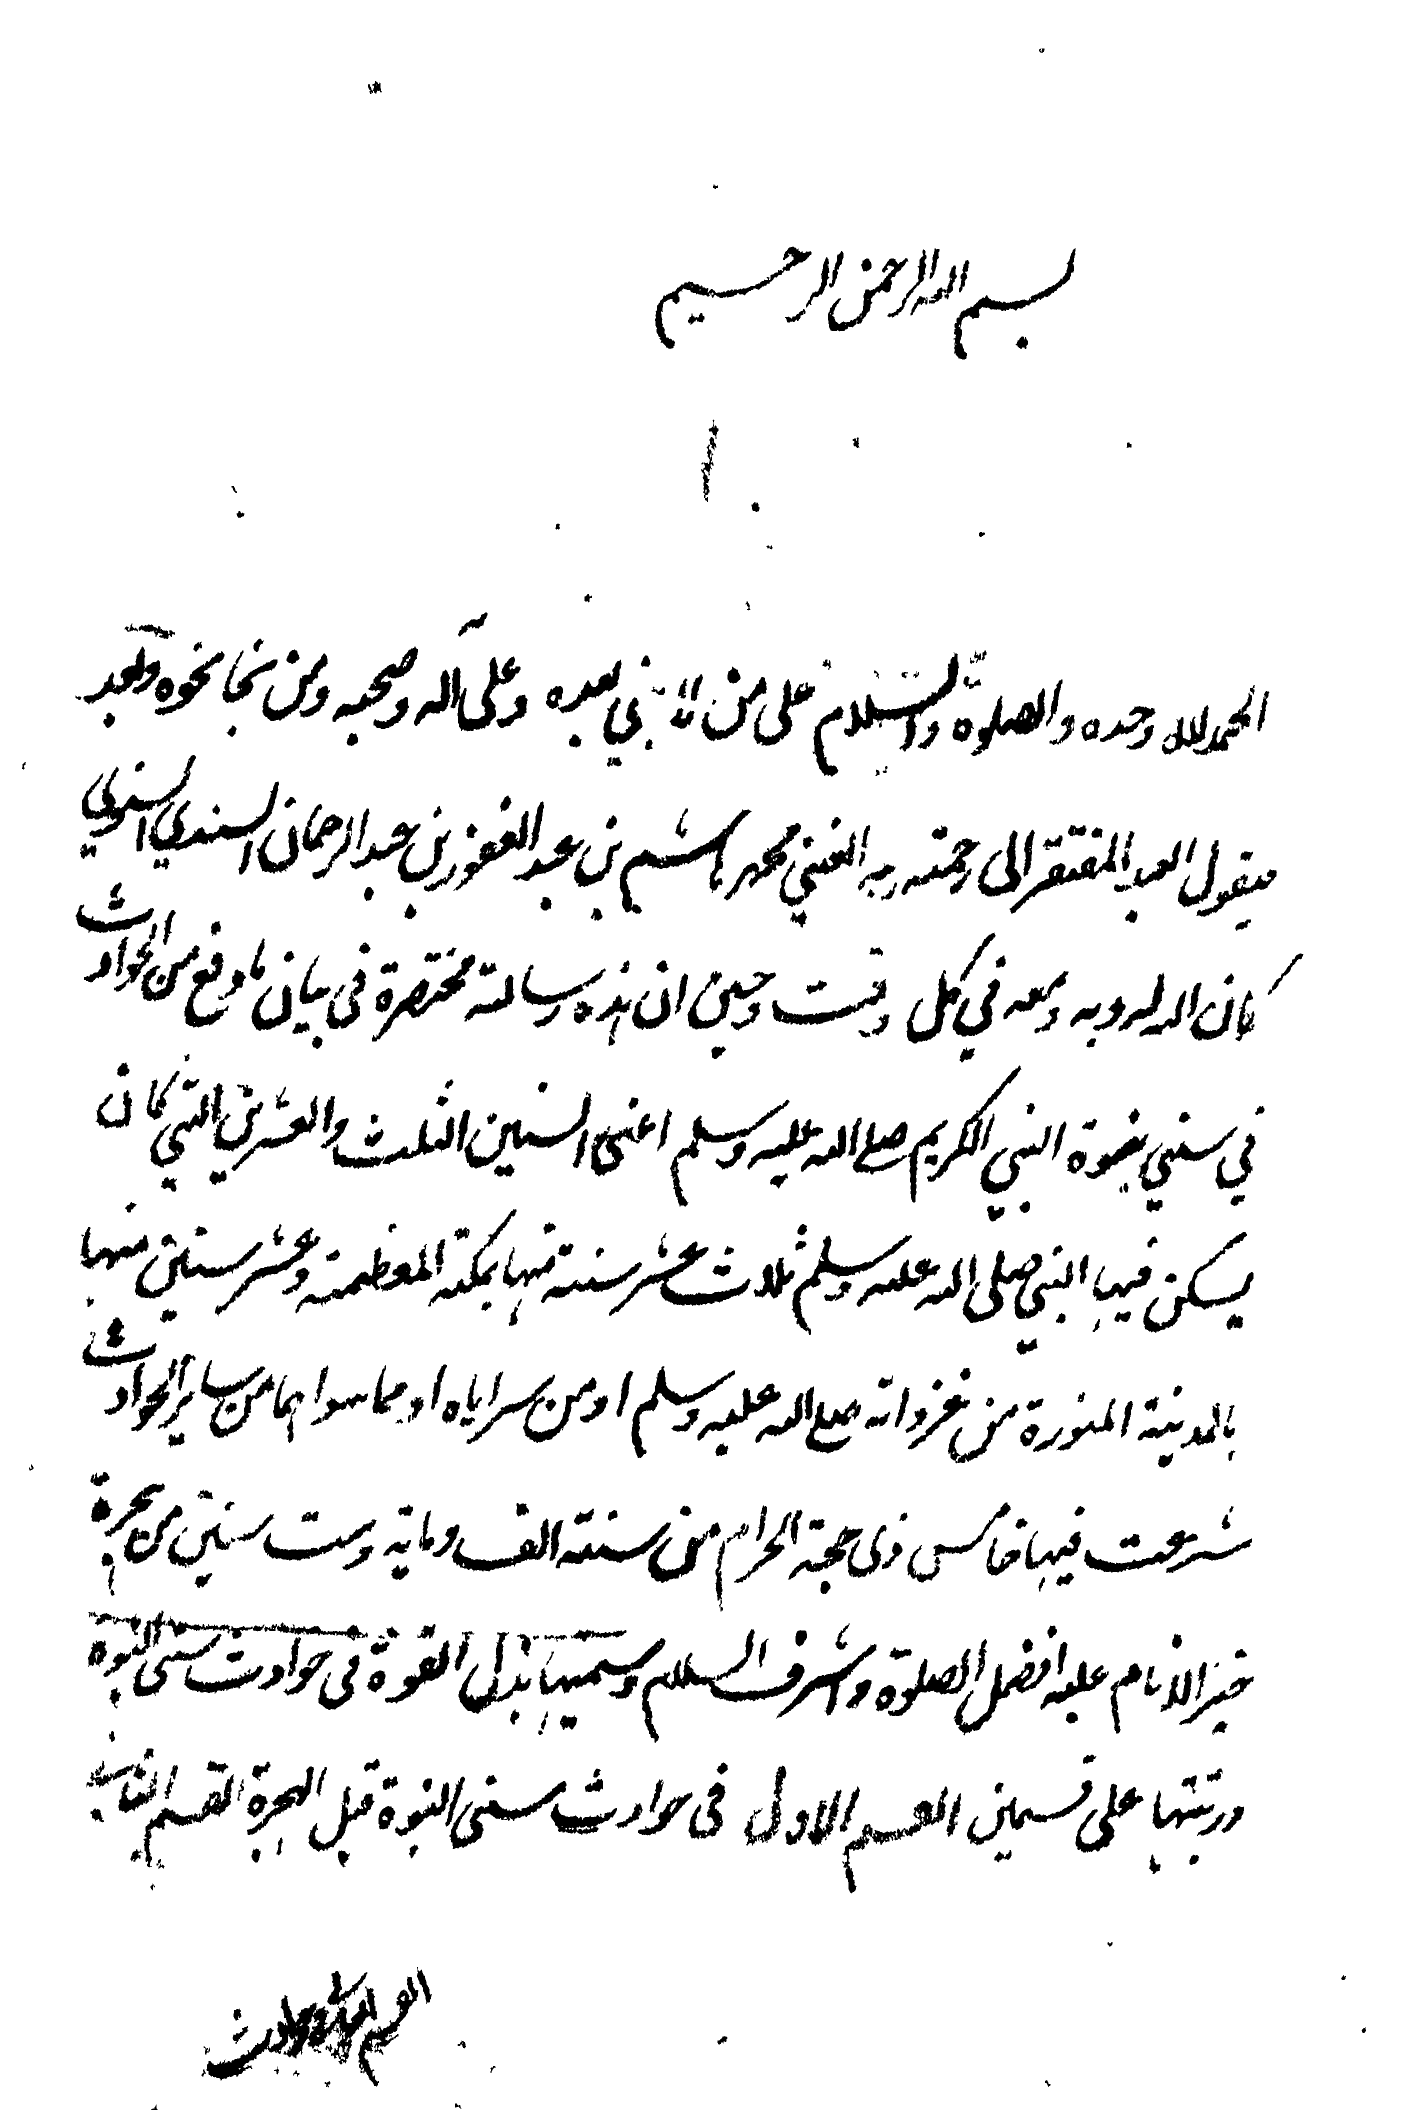 بسم الله الرحمن الرحيم
الحمد لله وحده والصلوة والسلام على من لا نبي بعده وعلى آله وصحبه ومن نحا نحوه وبعد
فيقول العبد المفتقر الى رحمة ربه الغني محمد هاشم بن عبد الغفور بن عبد الرحمان السندي التتوي
كان الله له وبه ومعه في كل وقت وحين ان هذه رسالة مختصرة في بيان ما وقع من الحوادث
في سني نبوة النبي الكريم صلى الله عليه وسلم اعنى السنين الثلث والعشرين التي كان
يسكن فيها النبي صلى الله عليه وسلم ثلاث عشر سنة منها بمكة المعظمة وعشر سنين منها
بالمدينة المنورة من غزواته صلى الله عليه وسلم او من سراياه او مما سواهما من ساير الحوادث
شرعت فيها خامس ذى حجة الحرام من سنة الف وماية وست سنين من هجرة
خير الانام عليه افضل الصلوة واشرف السلام وسميتها بذل القوة فى حوادث سنى النبوة
ورتبتها على قسمين القسم الاول فى حوادث سنى النبوة قبل الهجرة القسم الثاني
القسم الثاني فى حوادث